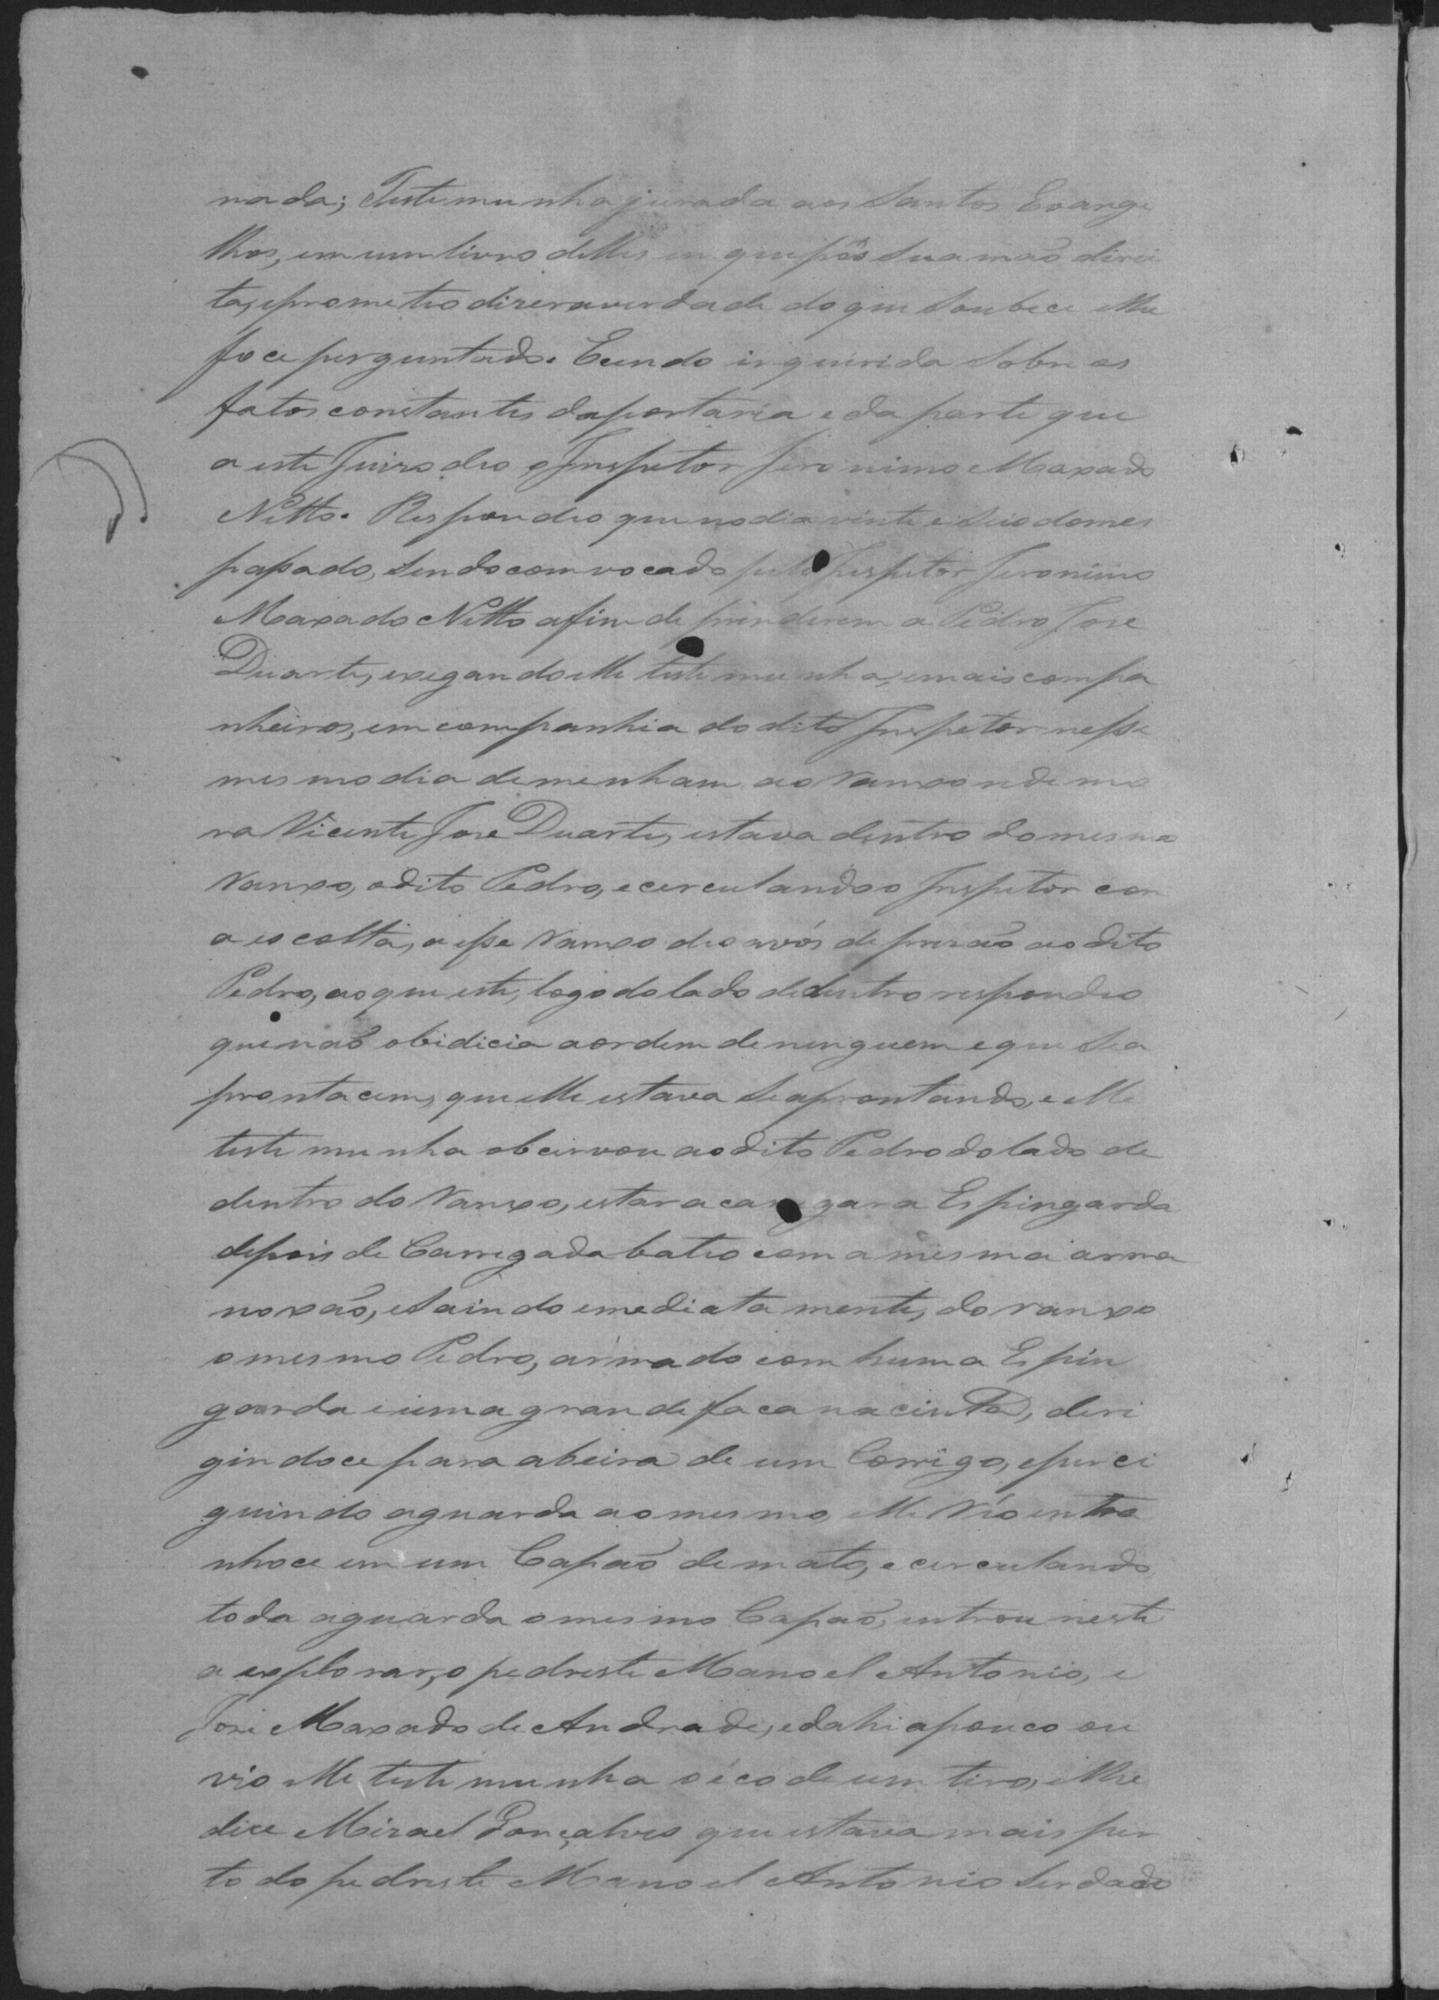 nada; Testemunha jurada aos Santos Evange
lhos, em um livro delles en que pôs sua mão direi
ta, eprometeo dizer averdade do que Soubece elhe
foce perguntado. Ecendo inquirida Sobre os
fatos constantes daportaria e da parte que
a este Juizo deo o Inspetor Jeronimo Maxado
Netto. Respondeo que no dia vinte e Seis domes
passado, Sendo comvocado pelo Inspetor Jeronimo
Maxado Netto afim de prenderem a Pedro Jose
Duarte, exegando elle testemunha, emais compa
nheiros, em companhia do dito Inspetor nesse
mesmo dia demenham ao Ranxo onde mo
ra Vicente Jose Duarte, estava dentro do mesmo
Ranxo, odito Pedro, ecerculando o Inspetor com
a escolta, a esse Ranxo deo avós de prizão ao dito
Pedro, ao que este, logo dolado de dentro respondeo
que não obidicia a ordem de ninguem e que Sea
prontacem, que elle estava Se aprontando, e elle
testemunha obcervou ao dito Pedro do lado de
dentro do Ranxo, estar a carregar a Espingarda
depois de Carregada bateo com a mesma arma
noxão, eSaindo emediatamente, do ranxo
omesmo Pedro, armado com huma Espin
garda e uma grande faca nacinta, deri
gindoce para abeira de um Corrigo, eperci
guindo aguarda ao mesmo, elle entra
nhoce em um Capão de mato, e cerculando
toda aguarda omesmo Capão, entrou neste
a explorar, o pedreste Manoel Antonio, e
Jose Maxado de Andrade, edahi apouco ou
vio elle testemunha o éco de um tiro, elhe
dice Mizael Gonçalves que estava mais per
to do pedreste Manoel Antonio Ser dado